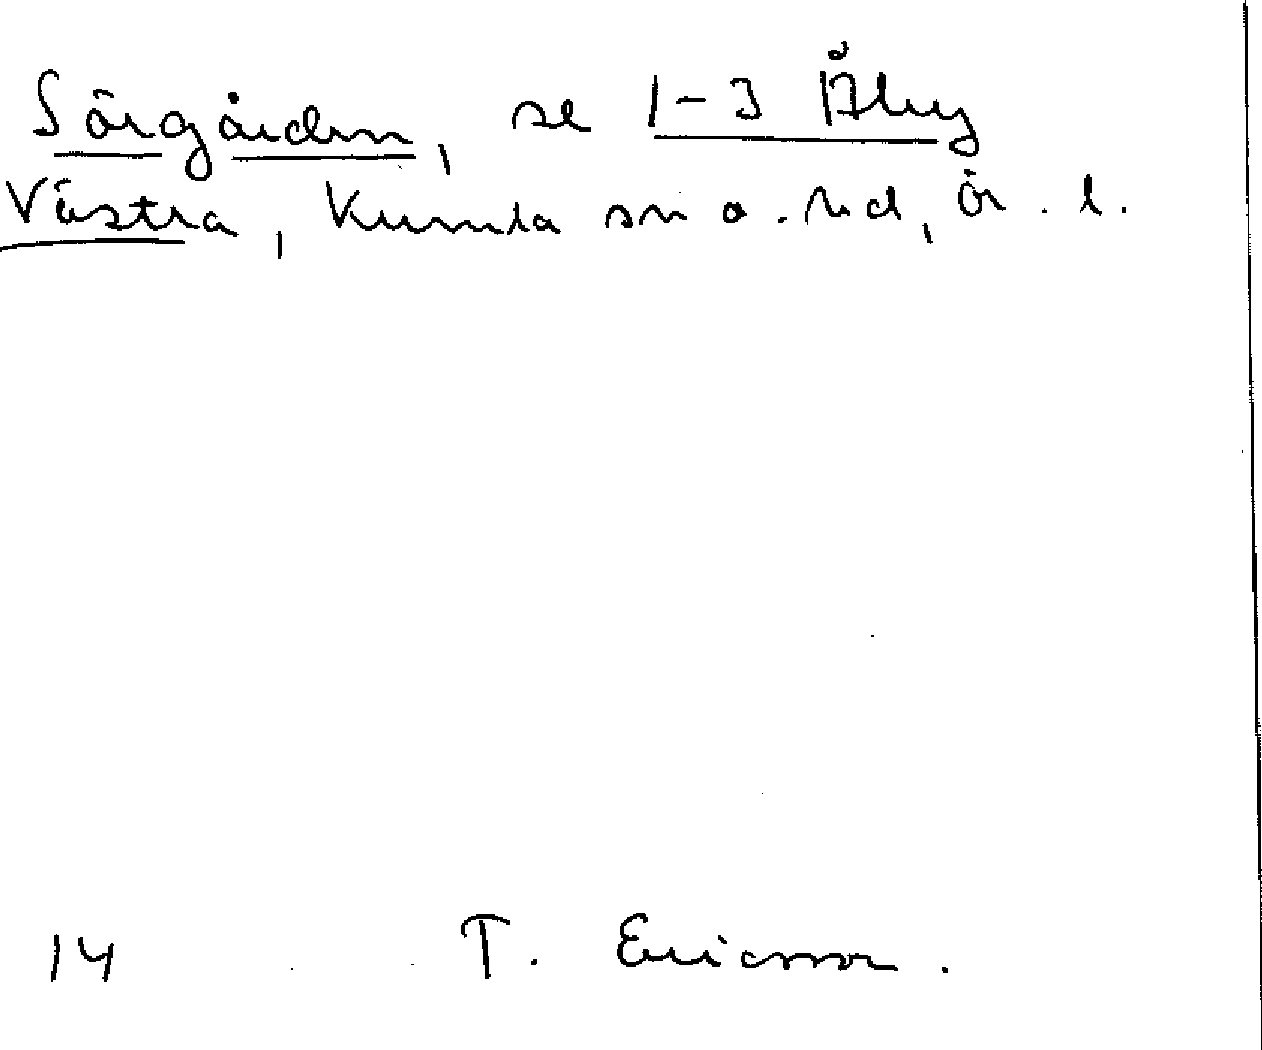 Sörgården, se 1-3 Älvy
Västra, Kumla sn o. hd, Ör. l.
14 T. Ericsson.